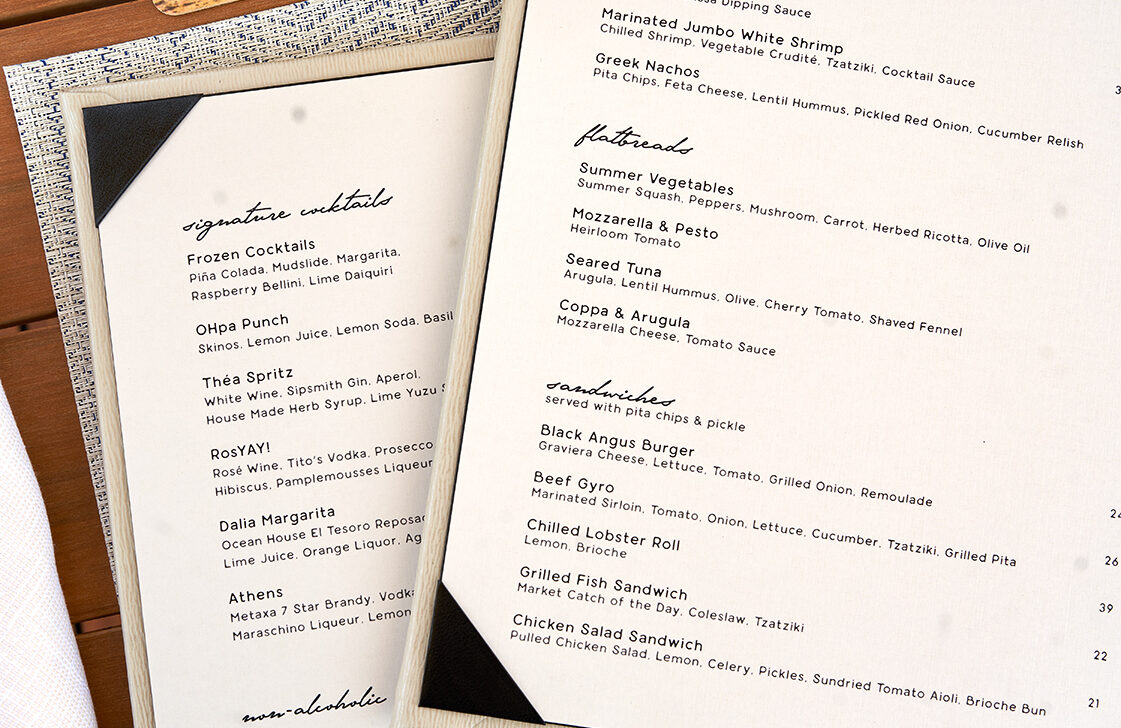 signature cocktails
Frozen Cocktails
Piña Colada, Mudslide, Margarita,
Raspberry Bellini, Lime Daiquiri
OHpa Punch
Skinos, Lemon Juice, Lemon Soda, Basil
Théa Spritz
White Wine, Sipsmith Gin, Aperol,
House Made Herb Syrup, Lime Yuzu
RosYAY!
Rosé Wine, Tito's Vodka, Prosecco
Hibiscus, Pamplemousses Liqueur
Dalia Margarita
Ocean House El Tesoro
Lime Juice, Orange Liquor,
Athens
Metaxa 7 Star Brandy,
Maraschino Liqueur, Lemon
non-alcoholic
Dipping Sauce
Marinated Jumbo White Shrimp
Chilled Shrimp, Vegetable Crudité, Tzatziki, Cocktail Sauce
Greek Nachos
Pita Chips, Feta Cheese, Lentil Hummus, Pickled Red Onion, Cucumber Relish
flatbreads
Summer Vegetables
Summer Squash, Peppers, Mushroom, Carrot, Herbed Ricotta, Olive Oil
Mozzarella & Pesto
Heirloom Tomato
Seared Tuna
Arugula, Lentil Hummus, Olive, Cherry Tomato, Shaved Fennel
Coppa & Arugula
Mozzarella Cheese, Tomato Sauce
sandwiches
served with pita chips & pickle
Black Angus Burger
Graviera Cheese, Lettuce, Tomato, Grilled Onion, Remoulade
Beef Gyro 24
Marinated Sirloin, Tomato, Onion, Lettuce, Cucumber, Tzatziki, Grilled Pita
Chilled Lobster Roll 26
Lemon, Brioche
Grilled Fish Sandwich 39
Market Catch of the Day, Coleslaw, Tzatziki
Chicken Salad Sandwich 22
Pulled Chicken Salad, Lemon, Celery, Pickles, Sundried Tomato Aioli, Brioche Bun
21